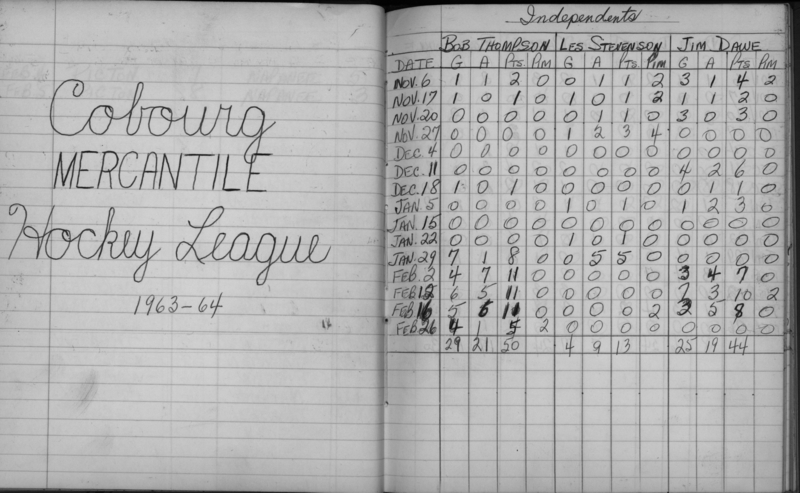 Cobourg
MERCANTILE
Hockey League
1963-64
Independents
BOB THOMPSON LES STEVENSON JIM DAWE
DATE G A Pts. PIM G A Pts. PIM G A Pts PIM
NOV. 6 1 1 2 0 0 1 1 2 3 1 4 2
NOV. 17 1 0 1 0 1 0 1 2 1 1 2 0
NOV. 20 0 0 0 0 0 1 1 0 3 0 3 0
NOV. 27 0 0 0 0 1 2 3 4 0 0 0 0
DEC. 4 0 0 0 0 0 0 0 0 0 0 0 0
DEC. 11 0 0 0 0 0 0 0 0 4 2 6 0
DEC. 18 1 0 1 0 0 0 0 0 0 1 1 0
JAN. 5 0 0 0 0 1 0 1 0 1 2 3 0
JAN. 15 0 0 0 0 0 0 0 0 0 0 0 0
JAN. 22 0 0 0 0 1 0 1 0 0 0 0 0
JAN. 29 7 1 8 0 0 5 5 0 0 0 0 0
FEB. 2 4 7 11 0 0 0 0 0 3 4 7 0
FEB 12 6 5 11 0 0 0 0 0 7 3 10 2
FEB. 16 5 11 0 0 0 0 2 5 8 0
FEB. 26 4 1 5 2 0 0 0 0 0 0 0 0
29 21 50 4 9 13 25 19 44